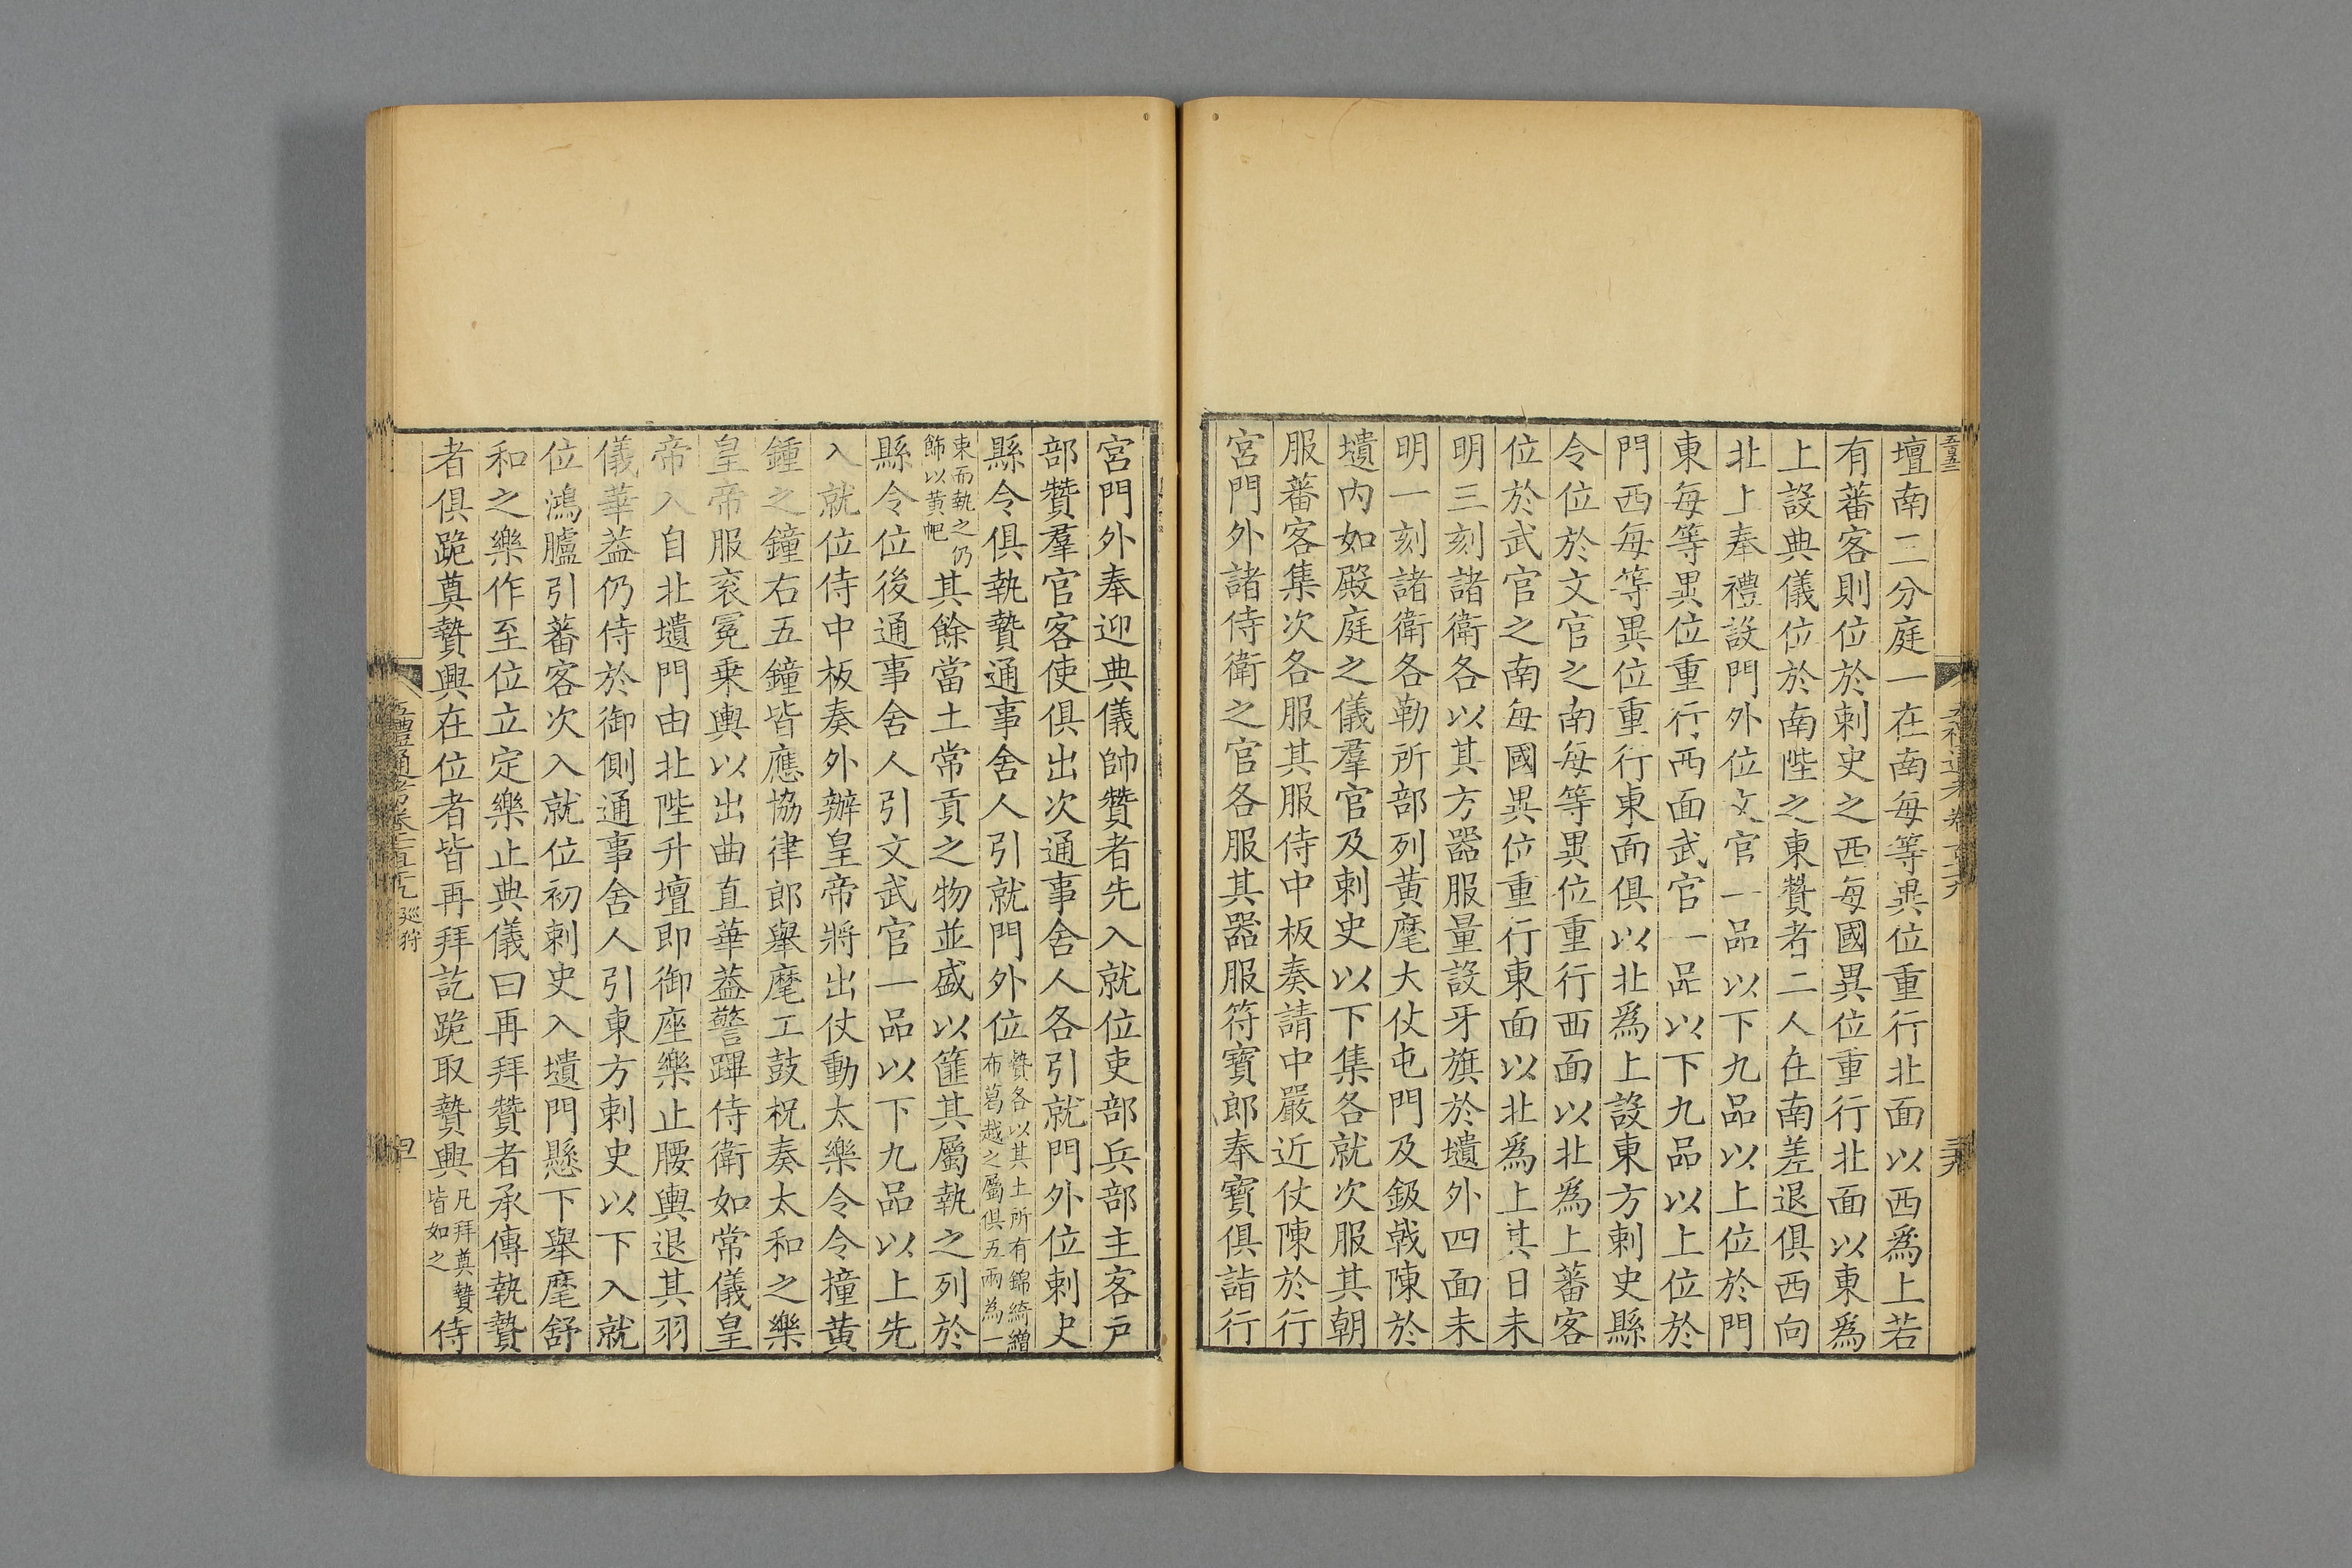 壇南二分庭一在南每等異位重行北面以西爲上若
有蕃客則位於刺史之西每國異位重行北面以東爲
上設典儀位於南陛之東贊者二人在南差退俱西向
北上奉禮設門外位文官一品以下九品以上位於門
東每等異位重行西面武官一品以下九品以上位於
門西每等異位重行東面俱以北爲上設東方刺史縣
令位於文官之南每等異位重行西面以北爲上蕃客
位於武官之南每國異位重行東面以北爲上其日未
明三刻諸衛各以其方器服量設牙旗於壝外四面未
明一刻諸衛各勒所部列黃麾大仗屯門及鈒戟陳於
壝內如殿庭之儀羣官及刺史以下集各就次服其朝
服蕃客集次各服其服侍中板奏請中嚴近仗陳於行
宮門外諸侍衛之官各服其器服符寶郎奉寶俱詣行
宮門外奉迎典儀帥贊者先入就位吏部兵部主客戶
部贊羣官客使俱出次通事舍人各引就門外位刺史
縣令俱執贄通事舍人引就門外位贄各以其土所有錦綺繒
布葛越之屬俱五兩為一
束而執之仍
飾以黃帊其餘當土常貢之物並盛以篚其屬執之列於
縣令位後通事舍人引文武官一品以下九品以上先
入就位侍中板奏外辦皇帝將出仗動太樂令令撞黃
鍾之鐘右五鐘皆應協律郎舉麾工鼓柷奏太和之樂
皇帝服衮冕乗輿以出曲直華葢警蹕侍衛如常儀皇
帝入自北壝門由北陛升壇即御座樂止腰輿退其羽
儀華葢仍侍於御側通事舍人引東方刺史以下入就
位鴻臚引蕃客次入就位初刺史入壝門懸下舉麾舒
和之樂作至位立定樂止典儀曰再拜贊者承傳執贄
者俱跪奠贄興在位者皆再拜訖跪取贄興凡拜奠贄
皆如之侍
五禮通考卷一百七十九 巡狩
四十